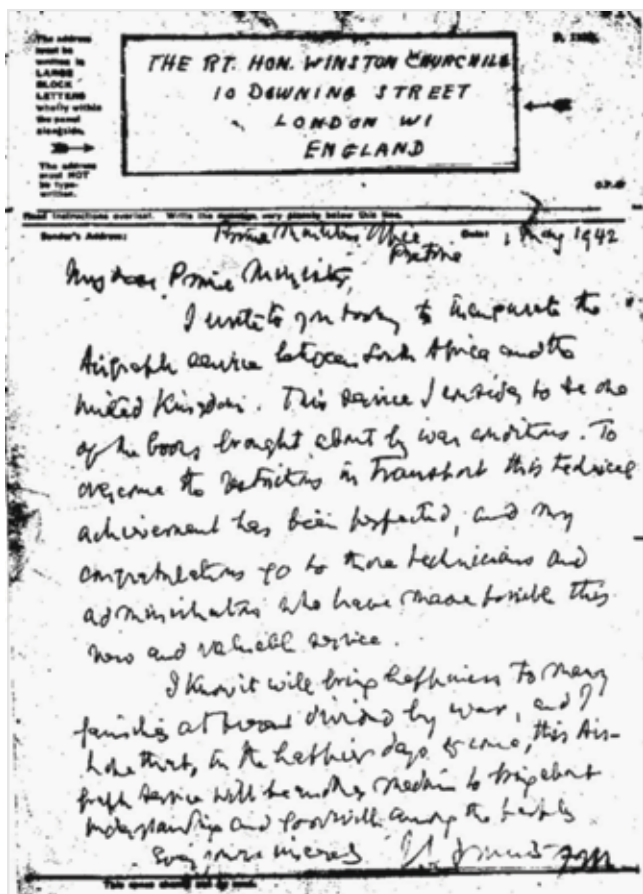 The address
must be
written in
LARGE
BLOCK
LETTERS
wholly within
the panel
alongside.
The address
must NOT
be type-
written.
THE RT. HON. WINSTON CHURCHILL
10 DOWNING STREET
LONDON W1
ENGLAND
Read instructions overleaf. Write the message very plainly below this line.
Sender's Address: Prime Minister's Office Date: 1942
Pretoria
My dear Prime Minister,
I write to you today to inaugurate the
Airgraph service between South Africa and the
United Kingdom. This service I consider to be one
of the boons brought about by war conditions. To
overcome the restrictions in transport this technical
achievement has been perfected, and my
congratulations go to those technicians and
administrators who have made possible this
new and valuable service.
I know it will bring happiness to many
families at present divided by war, and I
hope that, in the happier days to come, this Air-
graph service will be another medium to bring about
understanding and goodwill among the peoples
Ever yours sincerely
This space should not be used.